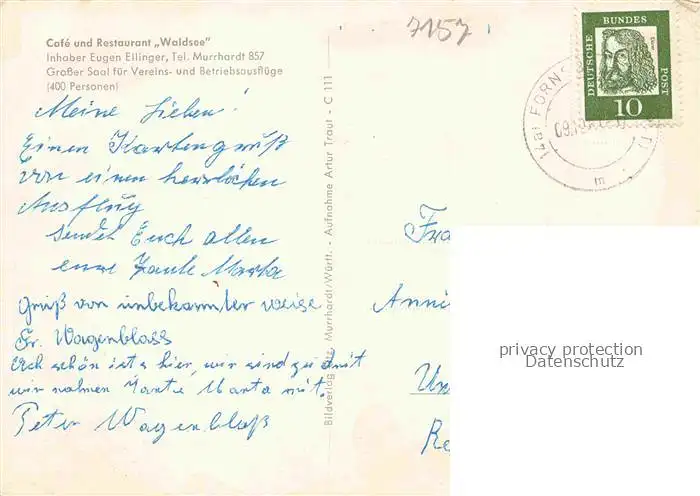 7157
Café und Restaurant „Waldsee"
Inhaber Eugen Ellinger, Tel. Murrhardt 857
Großer Saal für Vereins- und Betriebsausflüge
(400 Personen)
Meine Lieben!
Einen Kartengruß
von einen herrlichen
Ausflug
sendet Euch allen
eure Tante Marta
Gruß von unbekannter weise
Fr. Wagenblass
Ach schön ists hier, wir sind zu dritt
wir nahmen Tante Marta mit.
Peter Wagenblaß
Bildverlag Murrhardt/Württ. - Aufnahme Artur Traut - C 111
DEUTSCHE
BUNDES
POST
Dürer
10
(14a) FORNS
09.10
m
Fra
Anni
Un
Re
privacy protection
Datenschutz